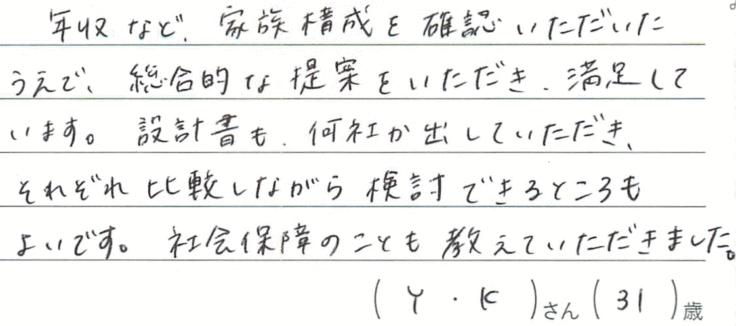 年収など、家族構成を確認いただいた
うえで、総合的な提案をいただき、満足して
います。設計書も、何社か出していただき、
それぞれ比較しながら検討できるところも
よいです。社会保障のことも教えていただきました。
(Y・K)さん(31)歳